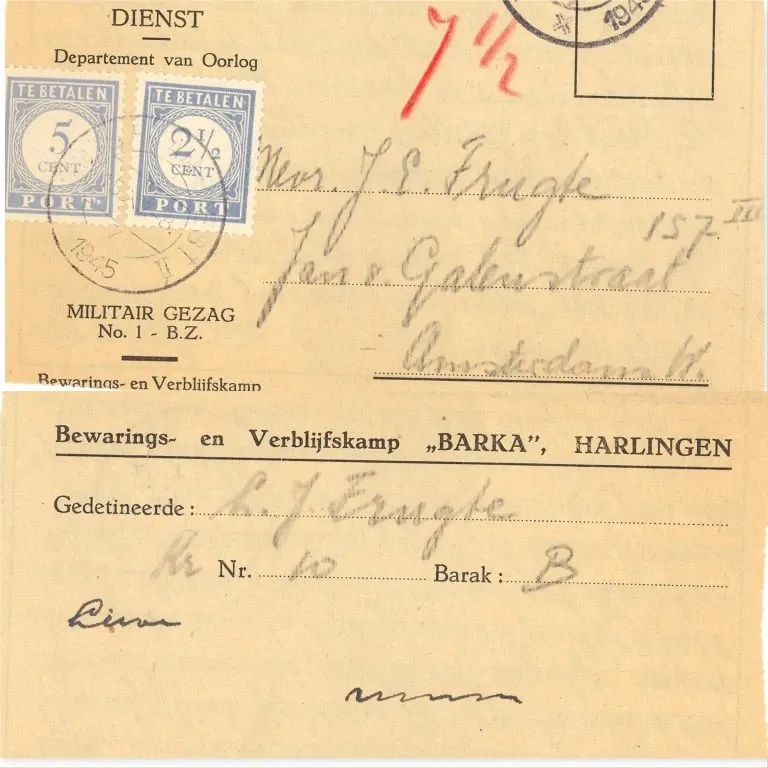 DIENST
Departement van Oorlog
7 1/2
1945
TE BETALEN
5
CENT
PORT
TE BETALEN
2½
CENT
PORT
1945
Mevr. J. E. Frugte
157 III
Jan v. Galenstraat
Amsterdam W.
MILITAIR GEZAG
No. 1 - B.Z.
Bewarings- en Verblijfskamp
Bewarings- en Verblijfskamp „BARKA”, HARLINGEN
Gedetineerde: L. J. Frugte
Nr. 10 Barak: B
Lieve